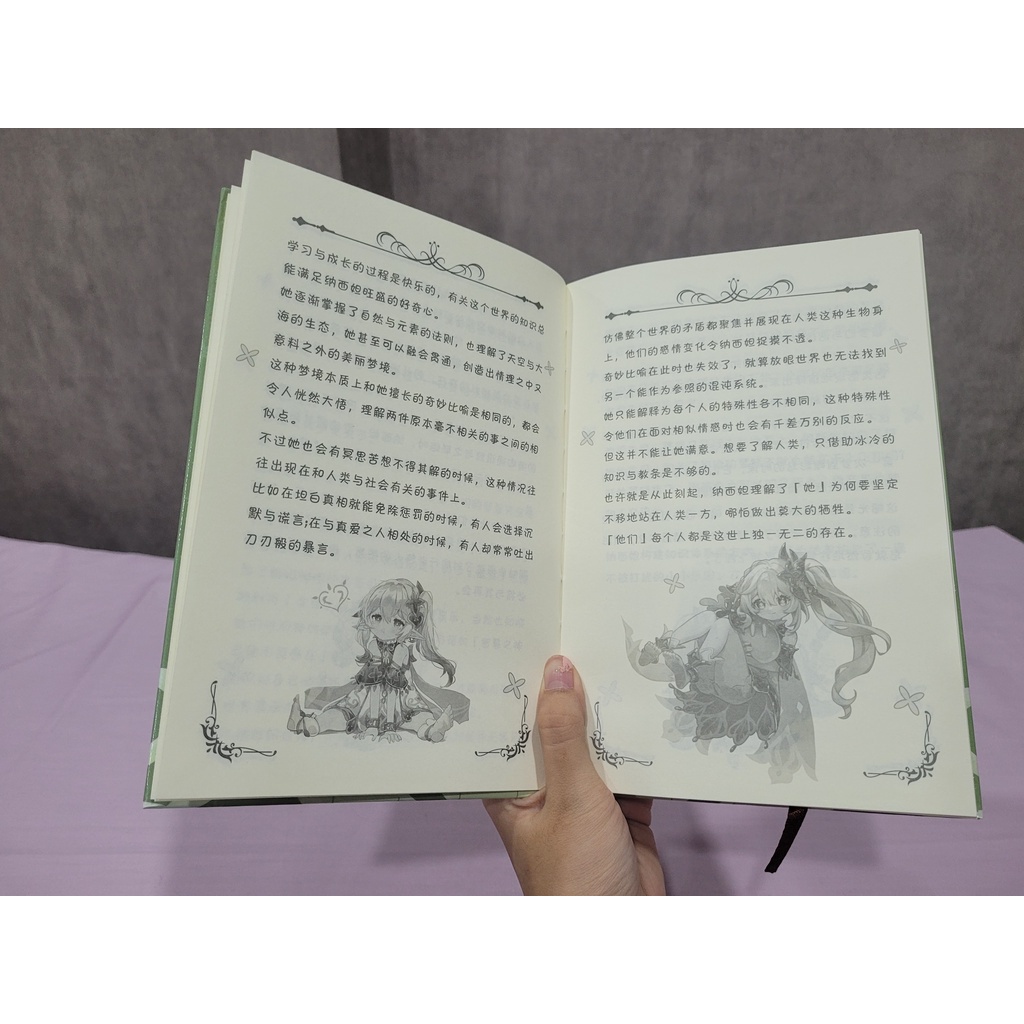 学习与成长的过程是快乐的，有关这个世界的知识总
能满足纳西妲旺盛的好奇心。
她逐渐掌握了自然与元素的法则，也理解了天空与大
海的生态，她甚至可以融会贯通，创造出情理之中又
意料之外的美丽梦境。
这种梦境本质上和她擅长的奇妙比喻是相同的，都会
令人恍然大悟，理解两件原本毫不相关的事之间的相
似点。
不过她也会有冥思苦想不得其解的时候，这种情况往
往出现在和人类与社会有关的事件上。
比如在坦白真相就能免除惩罚的时候，有人会选择沉
默与谎言；在与真爱之人相处的时候，有人却常常吐出
刀刃般的暴言。
仿佛整个世界的矛盾都聚焦并展现在人类这种生物身
上，他们的感情变化令纳西妲捉摸不透。
奇妙比喻在此时也失效了，就算放眼世界也无法找到
另一个能作为参照的混沌系统。
她只能解释为每个人的特殊性各不相同，这种特殊性
令他们在面对相似情感时也会有千差万别的反应。
但这并不能让她满意。想要了解人类，只借助冰冷的
知识与教条是不够的。
也许就是从此刻起，纳西妲理解了「她」为何要坚定
不移地站在人类一方，哪怕做出莫大的牺牲。
「他们」每个人都是这世上独一无二的存在。